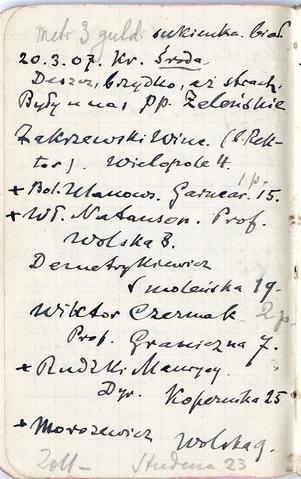 metr 3 guld. sukienka. biał.
20.3.07. Kr. Środa.
Deszcz, brzydko, aż strach.
Były u nas, pp. Zeleńskie
Zakrzewski Winc. (b. Rek-
tor) Wielopole 4.
1 p.
+ Bol. Ulanows. Garncar. 15.
+ Wł. Natanson. Prof.
Wolska 3.
Demetrykiewicz
Smoleńska 19.
Wiktor Czermak 2 p.
Prof. Graniczna 7.
+ Rudzki Maurycy.
Dyr. Kopernika 25
+ Morozewicz
Wolska 9.
Zoll - Studena 23